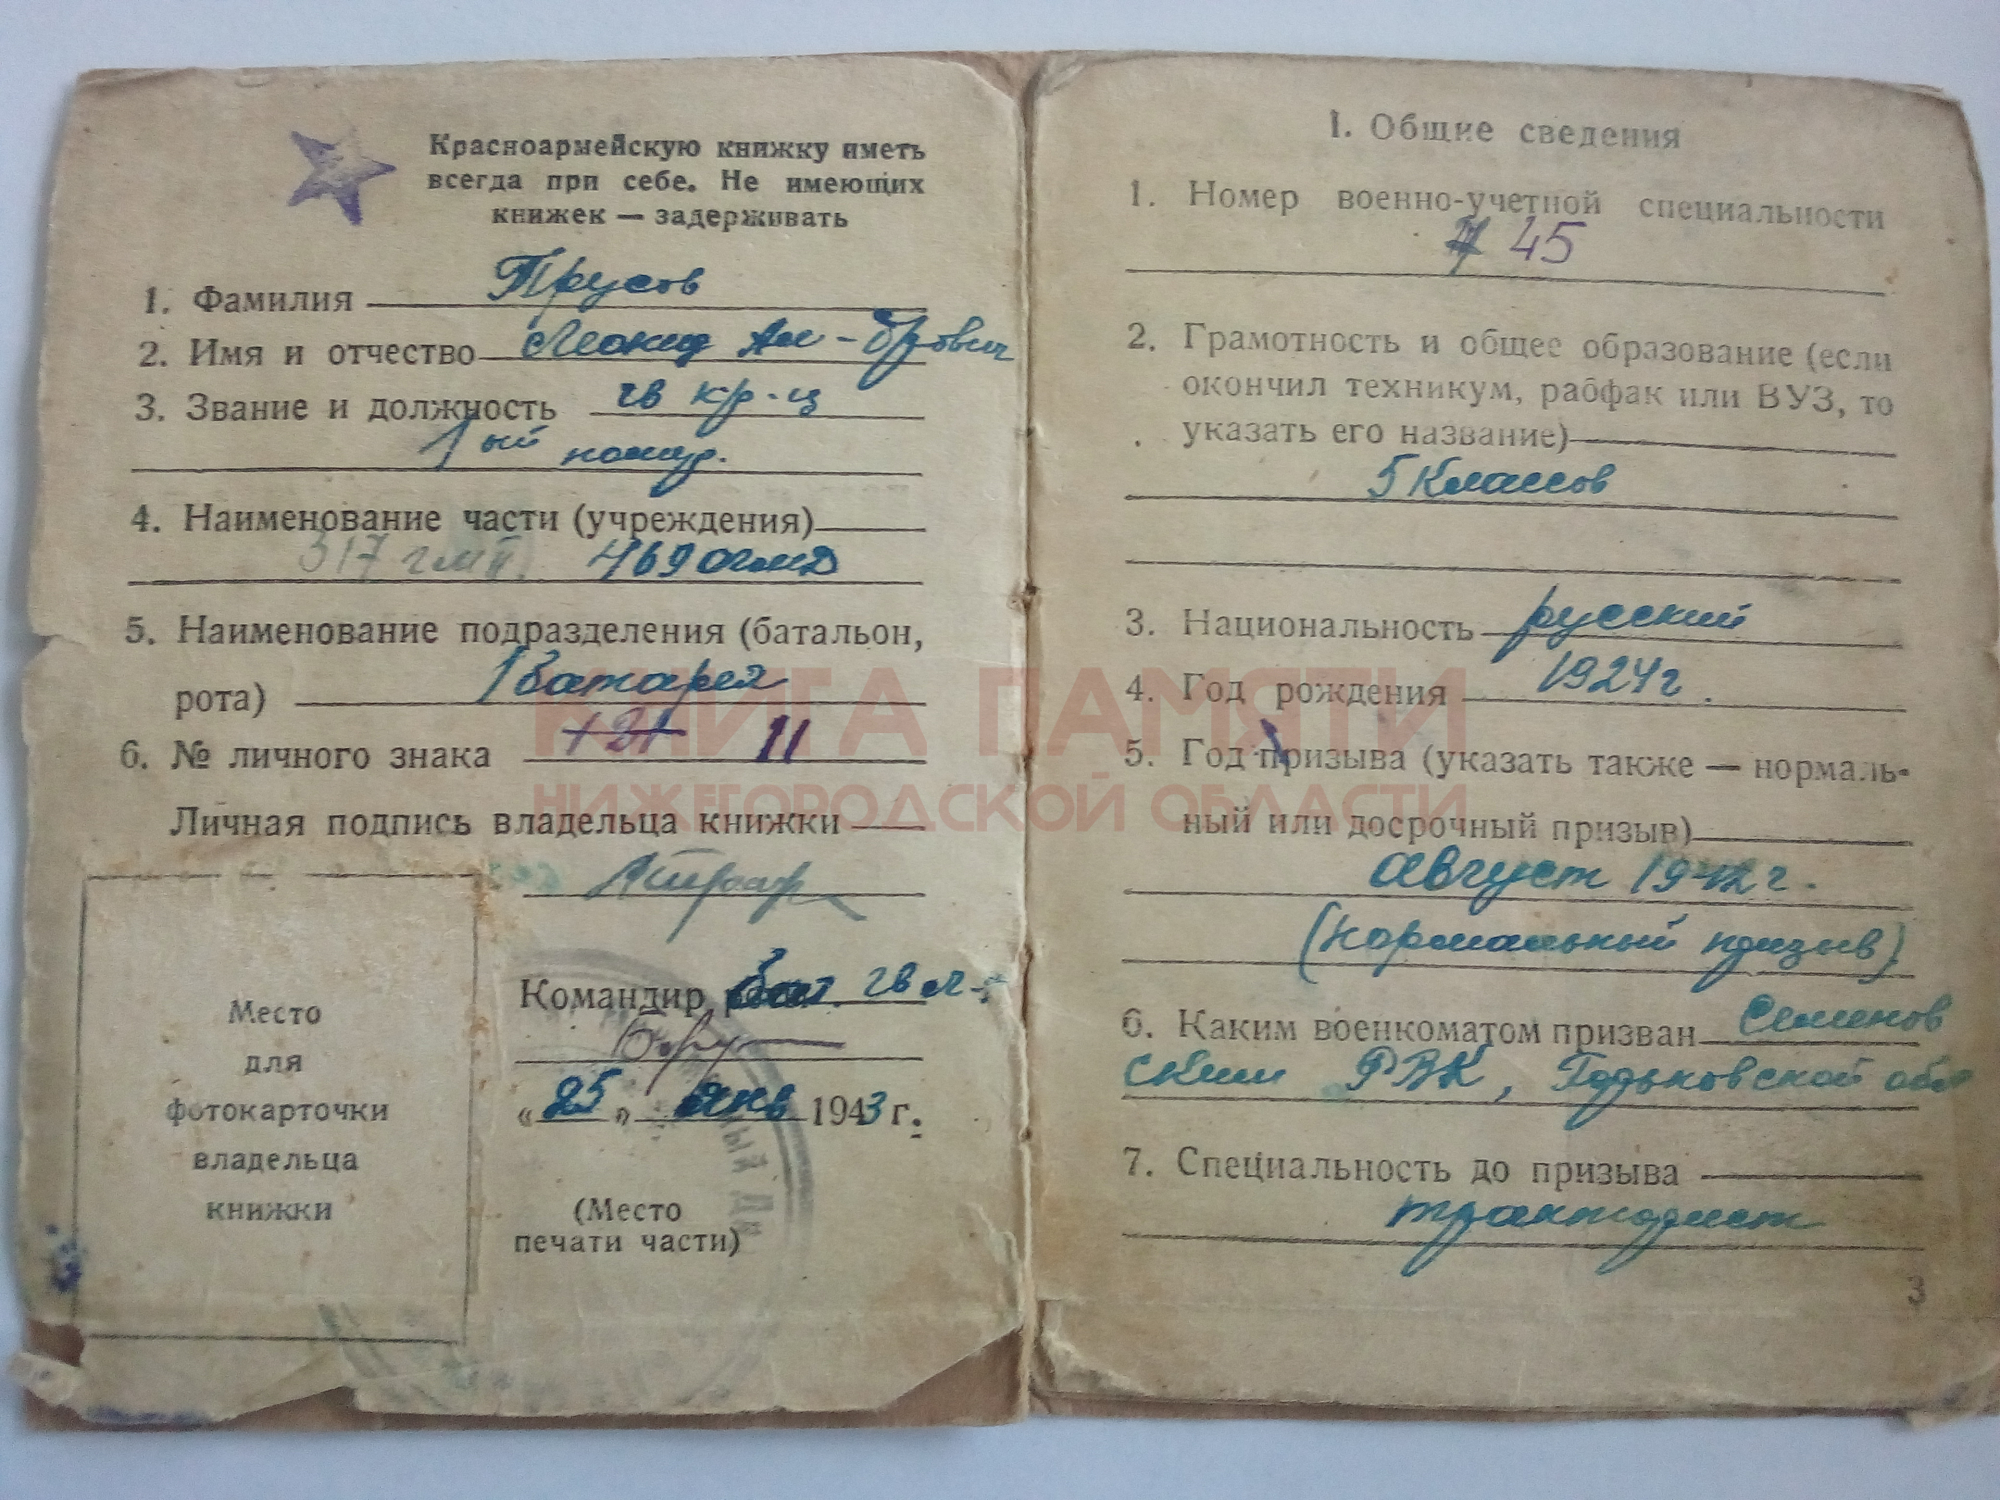 Красноармейскую книжку иметь
всегда при себе. Не имеющих
книжек — задерживать
1. Фамилия Трусов
2. Имя и отчество Леонид Ал-дрович
3. Звание и должность гв кр-ц
1ый номер.
4. Наименование части (учреждения)
317 гмп. 469 огмд
5. Наименование подразделения (батальон,
рота) 1 батарея
6. № личного знака 11
Личная подпись владельца книжки
Место
для
фотокарточки
владельца
книжки
Командир бат. гв л-т
«25» янв 1943 г.
(Место
печати части)
I. Общие сведения
1. Номер военно-учетной специальности
45
2. Грамотность и общее образование (если
окончил техникум, рабфак или ВУЗ, то
указать его название)
5 классов
3. Национальность русский
4. Год рождения 1924 г.
5. Год призыва (указать также — нормаль-
ный или досрочный призыв)
август 1942 г.
(нормальный призыв)
6. Каким военкоматом призван Семенов
ским РВК, Горьковской обл
7. Специальность до призыва
тракторист
3
КНИГА ПАМЯТИ
НИЖЕГОРОДСКОЙ ОБЛАСТИ